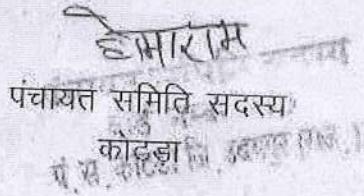 हेमाराम
पंचायत समिति सदस्य
कोटड़ा